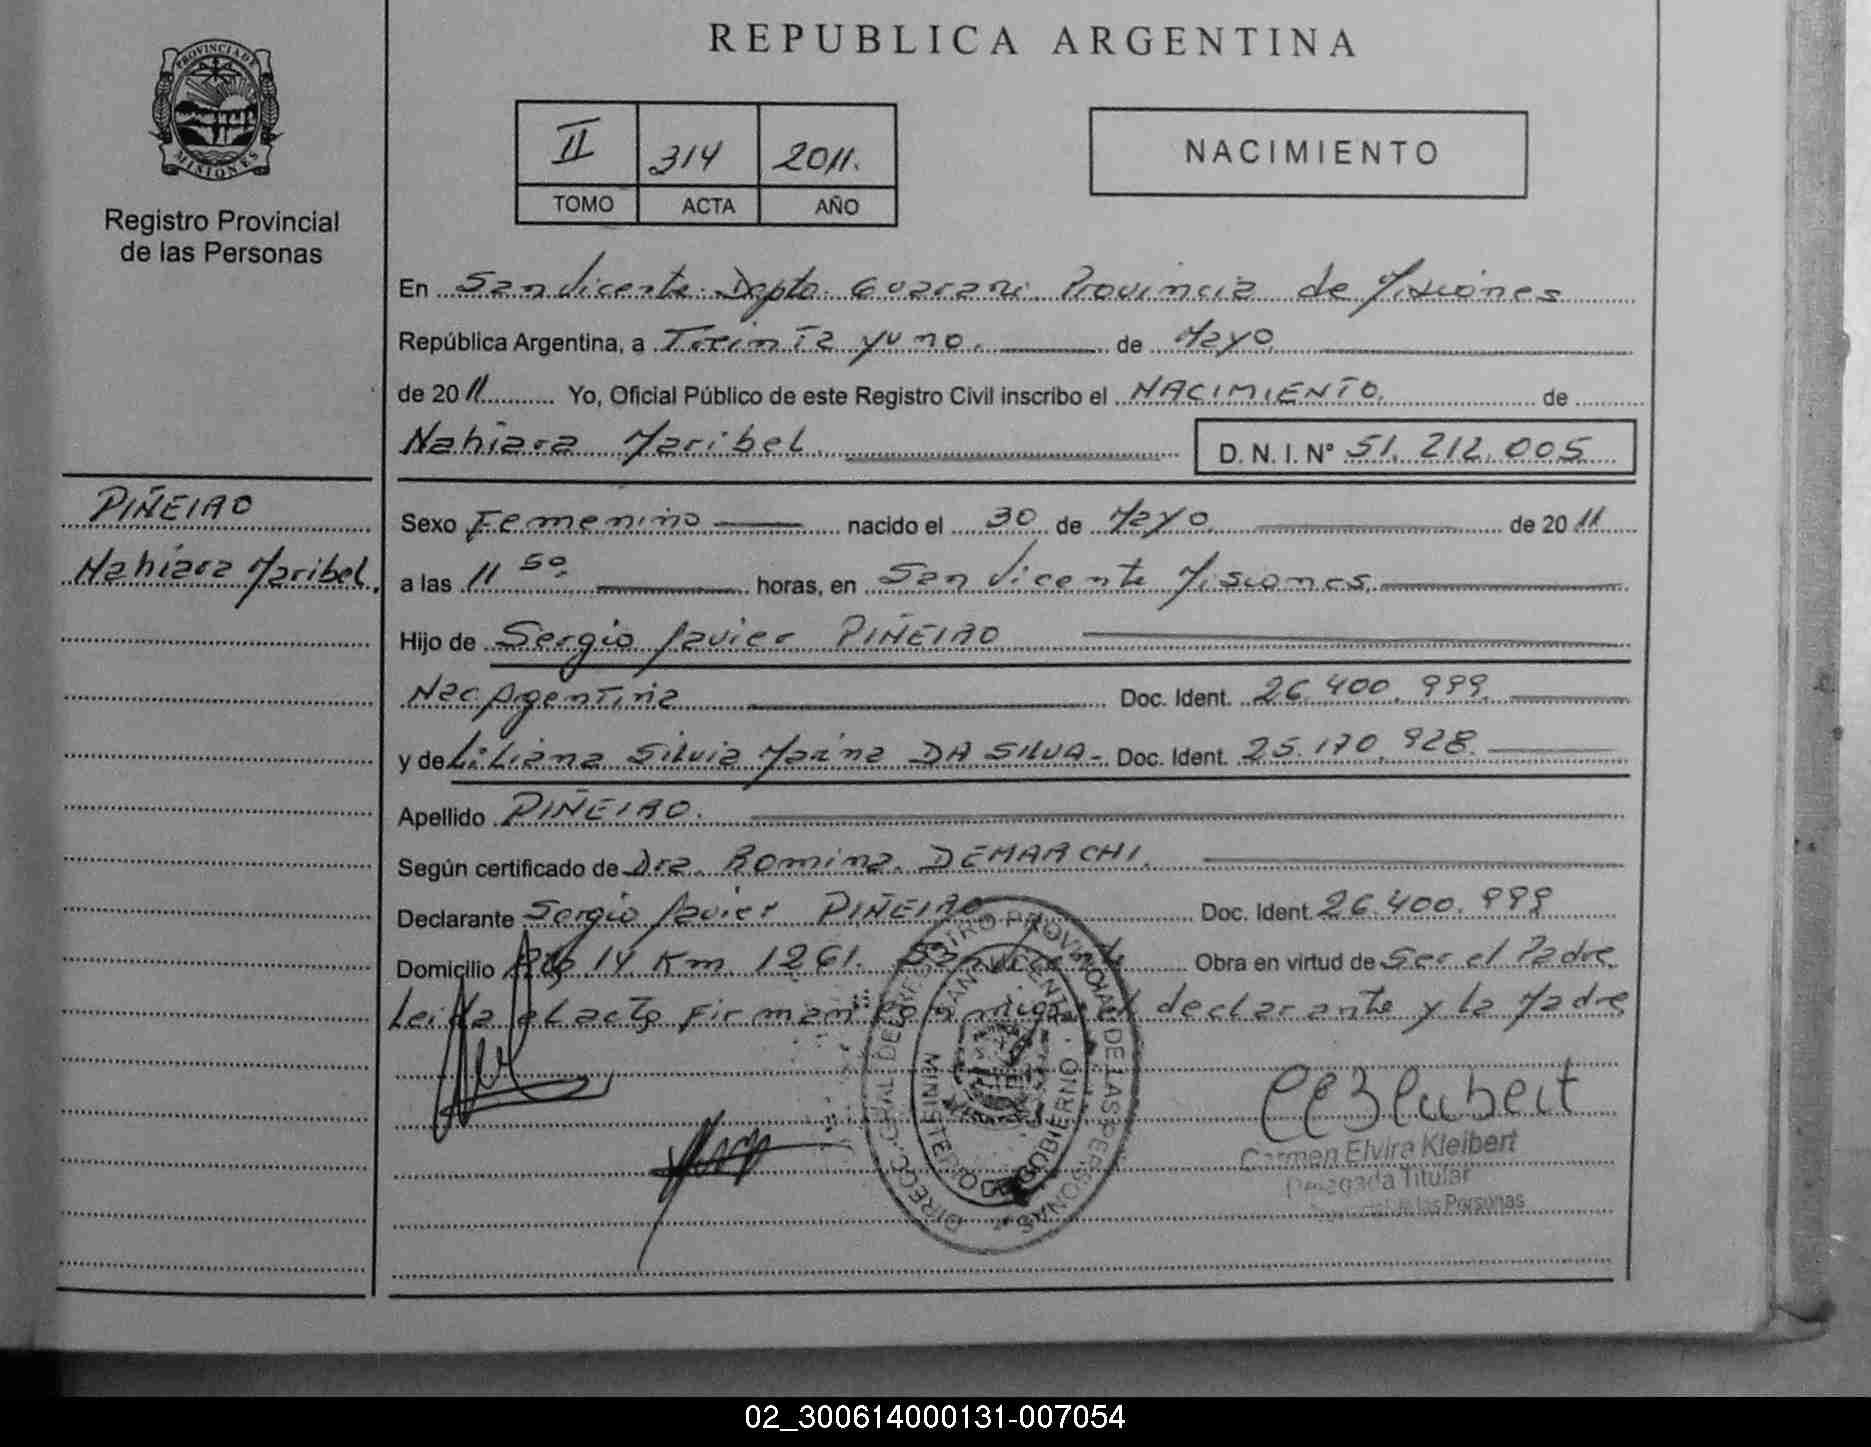 REPUBLICA ARGENTINA
PROVINCIA DE
MISIONES
Registro Provincial
de las Personas
II 314 2011.
TOMO ACTA AÑO
NACIMIENTO
En San Vicente Depto. Guarani Provincia de Misiones
República Argentina, a Treinta y uno. de Mayo
de 2011 Yo, Oficial Público de este Registro Civil inscribo el NACIMIENTO. de
Nahiara Maribel. D. N. I. N° 51.212.005
PIÑEIRO
Nahiara Maribel.
Sexo Femenino nacido el 30 de Mayo de 2011
a las 11 50. horas, en San Vicente Misiones.
Hijo de Sergio Javier PIÑEIRO
Nac. Argentina Doc. Ident. 26.400.999.
y de Liliana Silvia Marina DA SILVA- Doc. Ident. 25.170.928.
Apellido PIÑEIRO.
Según certificado de Dra. Romina. DEMARCHI.
Declarante Sergio Javier PIÑEIRO Doc. Ident. 26.400.999
Domicilio Rta 14 Km 1261. San Vicente Obra en virtud de Ser el Padre
Leida el acta firman conmigo el declarante y la Madre
MINISTERIO DE GOBIERNO
Carmen Elvira Kleibert
Delegada Titular
de las Personas
02_300614000131-007054